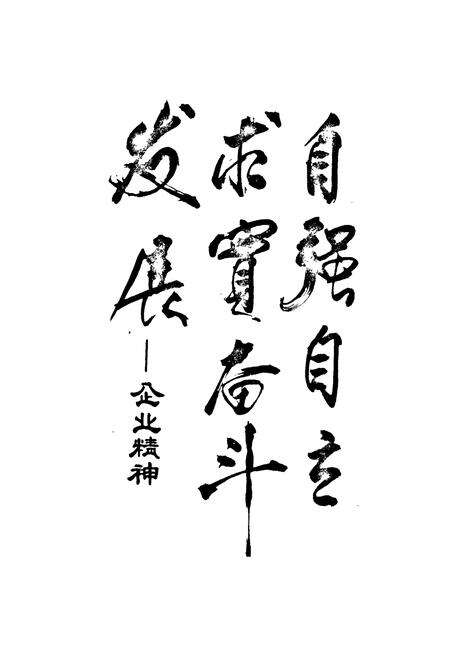 自强自立
求實奋斗
发展
—企业精神